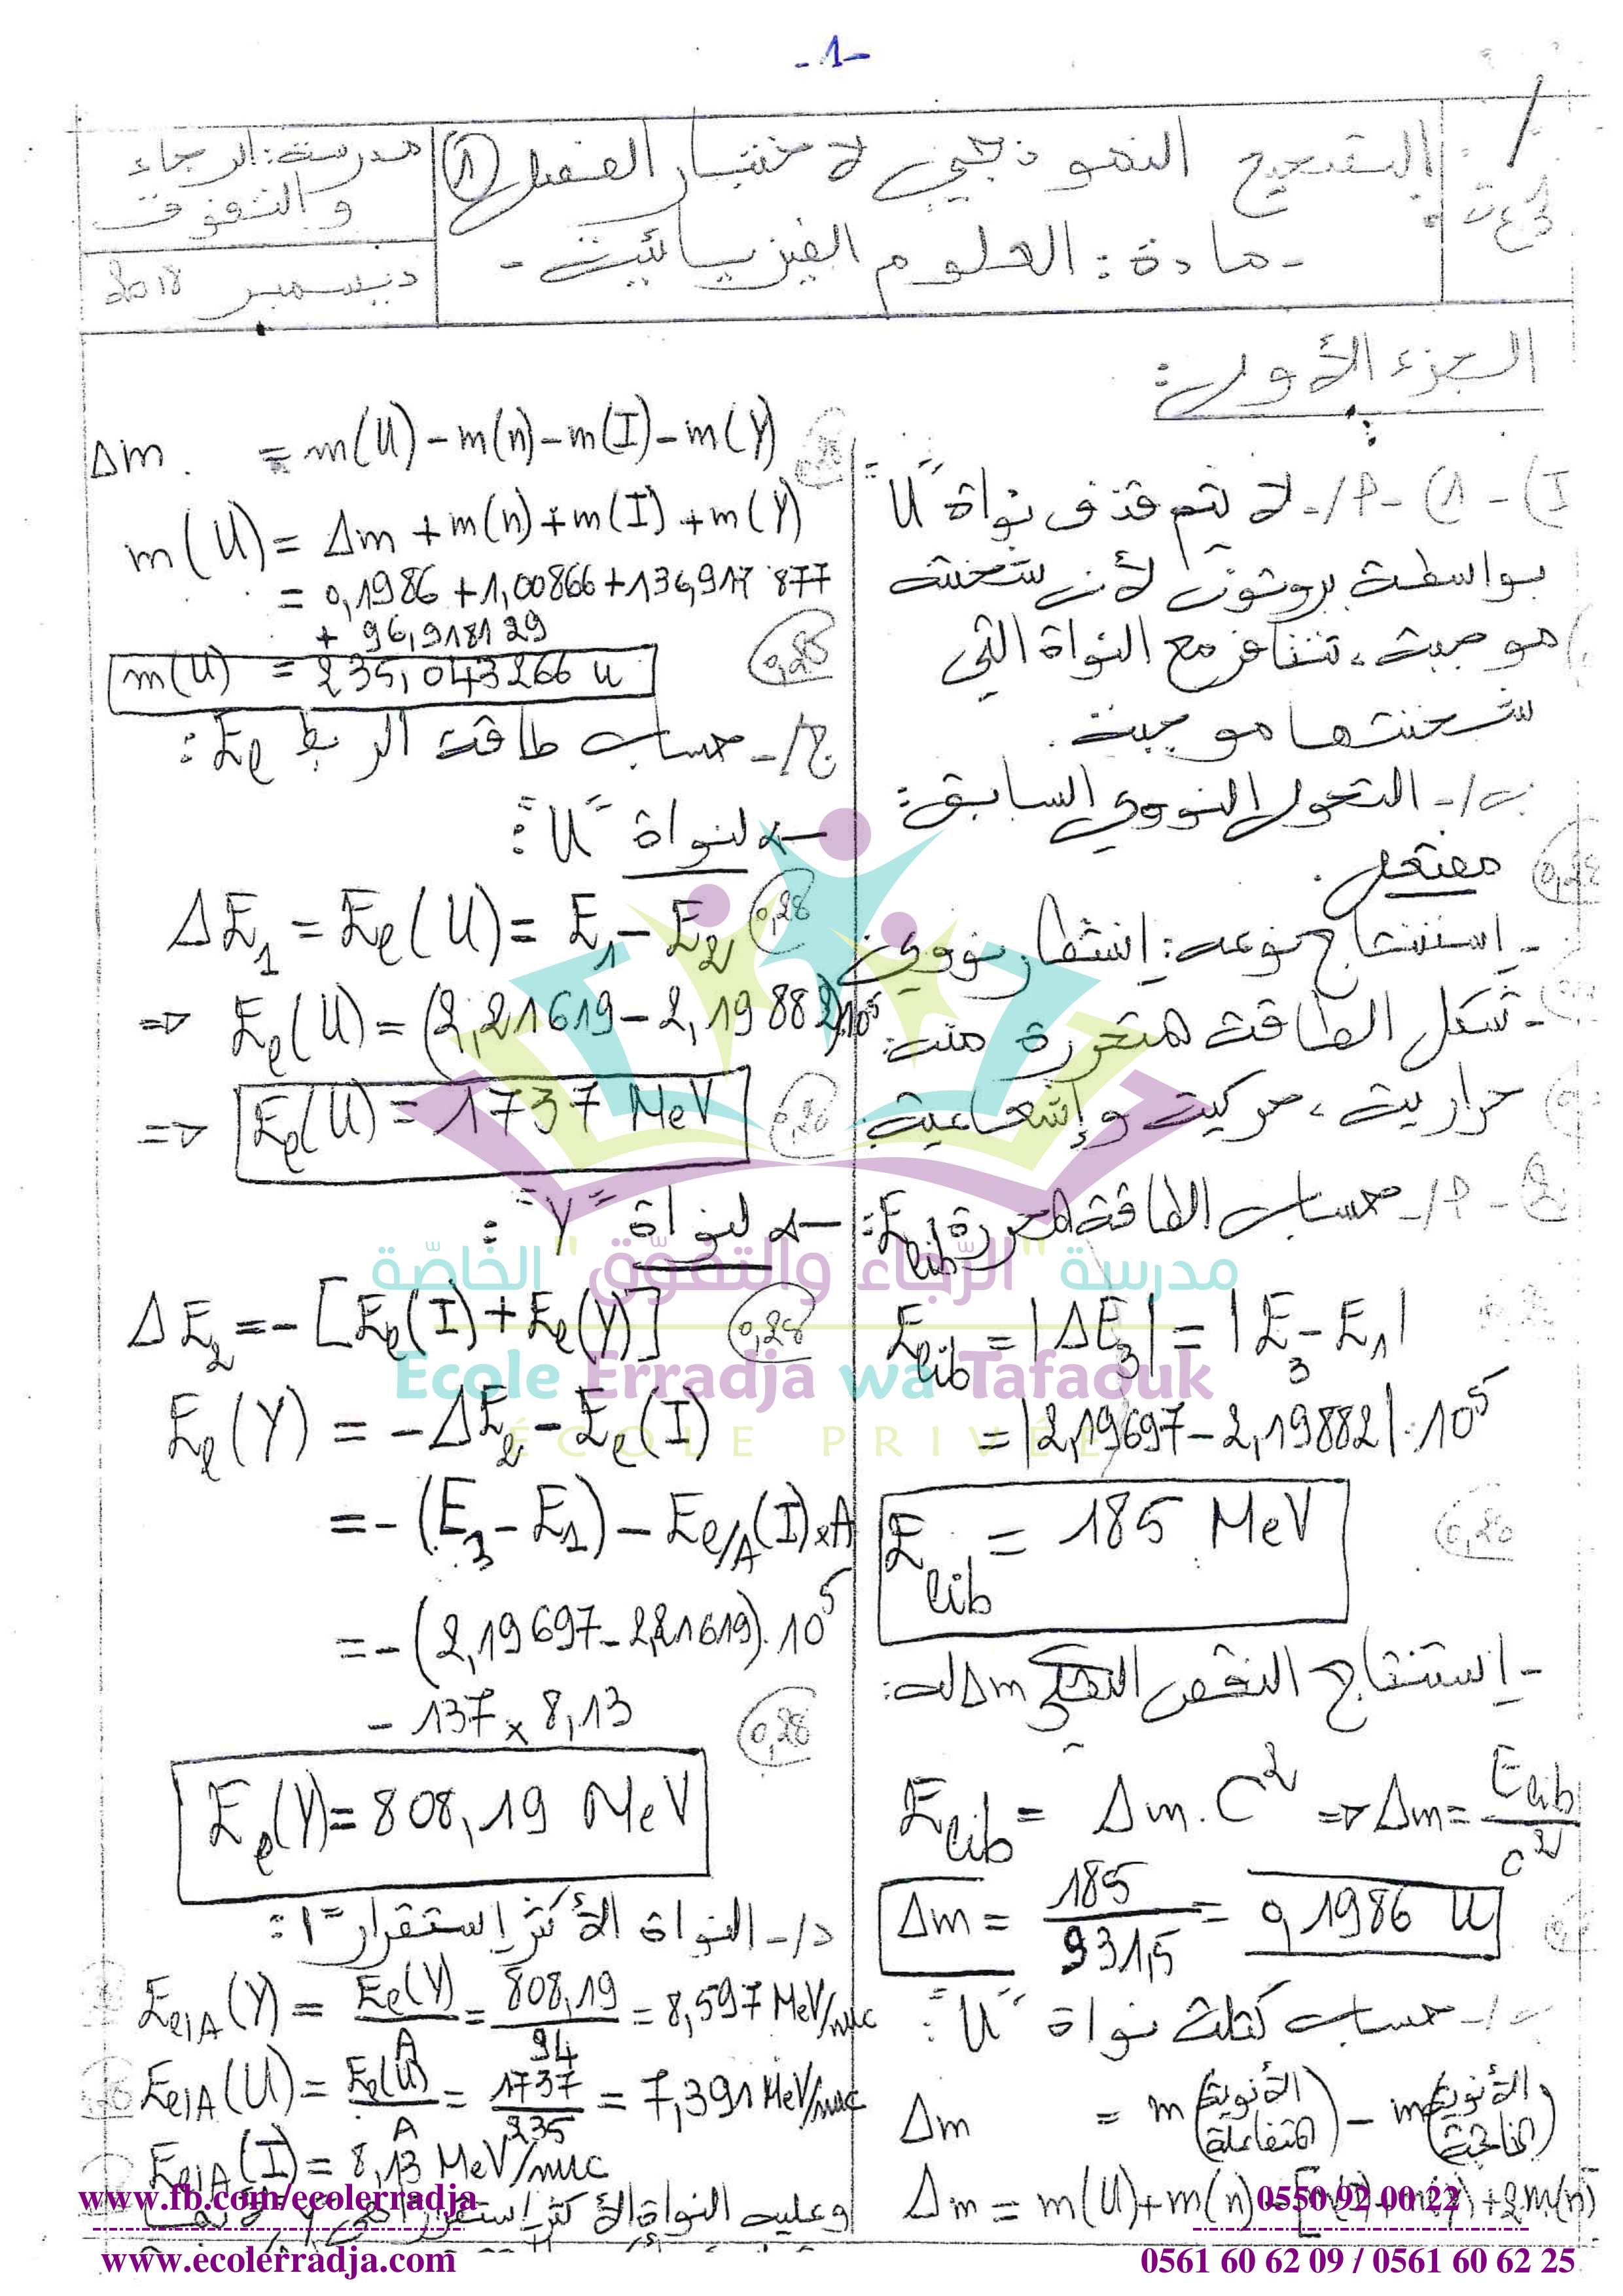 -1-
التصحيح النموذجي لاختبار الفصل (1)
- مادة: العلوم الفيزيائية -
مدرسة: الرجاء
والتفوق
ديسمبر 2018
الجزء الأول:
I) - 1) - P/- لا يتم قذف نواة "U"
بواسطة بروتون لأن شحنته
موجبة، تتنافر مع النواة التي
شحنتها موجبة.
ب/- التحول النووي السابق:
مفتعل.
0,25
- استنتاج نوعه: إنشطار نووي
- شكل الطاقة المتحررة منه:
حرارية، حركية وإشعاعية
2 - P/- حساب الطاقة المحررة Elib:
Elib = |ΔE3| = |E3 - E1|
= |2,19697 - 2,19882|.10^5
Elib = 185 MeV
- إستنتاج النقص الكتلي Δm له:
Elib = Δm.C² => Δm = Elib / c²
Δm = 185 / 931,5 = 0,1986 u
ب/- حساب كتلة نواة "U":
Δm = m(الأنوية المتفاعلة) - m(الأنوية الناتجة)
Δm = m(U)+m(n)
Δm = m(U) - m(n) - m(I) - m(Y)
m(U) = Δm + m(n) + m(I) + m(Y)
= 0,1986 + 1,00866 + 136,917 877
+ 96,918129
m(U) = 235,043266 u
0,25
ج/- حساب طاقة الربط El:
لنواة "U":
ΔE1 = El(U) = E1 - E2
0,25
=> El(U) = (2,21619 - 2,19882).10^5
=> El(U) = 1737 MeV
لنواة "Y":
ΔE2 = -[El(I) + El(Y)]
0,25
El(Y) = -ΔE2 - El(I)
= -(E3 - E1) - El/A(I)×A
= -(2,19697 - 2,21619).10^5
- 137 × 8,13
0,25
El(Y) = 808,19 MeV
د/- النواة الأكثر إستقرارا:
El/A(Y) = El(Y) / A = 808,19 / 94 = 8,597 MeV/nuc
El/A(U) = El(U) / A = 1737 / 235 = 7,391 MeV/nuc
El/A(I) = 8,13 MeV/nuc
وعليه النواة الأكثر إستقرارا هي
مدرسة "الرّجاء والتفوّق" الخاصّة
Ecole Erradja wa Tafaouk
ÉCOLE PRIVÉE
www.fb.com/ecolerradja
0550 92 00 22
www.ecolerradja.com
0561 60 62 09 / 0561 60 62 25